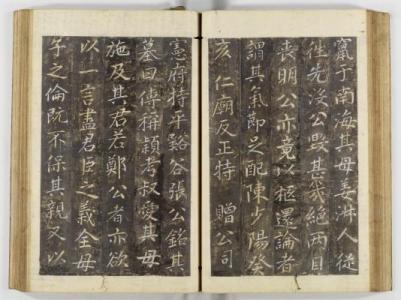 竄于南海其母姜淋人從
往先沒公毀甚幾絕兩目
喪明公亦竟以柩還論者
謂其氣節之配陳少陽癸
亥 仁廟反正特 贈公司
憲府持平谿谷張公銘其
墓曰傳稱潁考叔愛其母
施及其君若鄭公者亦欲
以一言盡君臣之義全母
子之倫阮不保其親又以